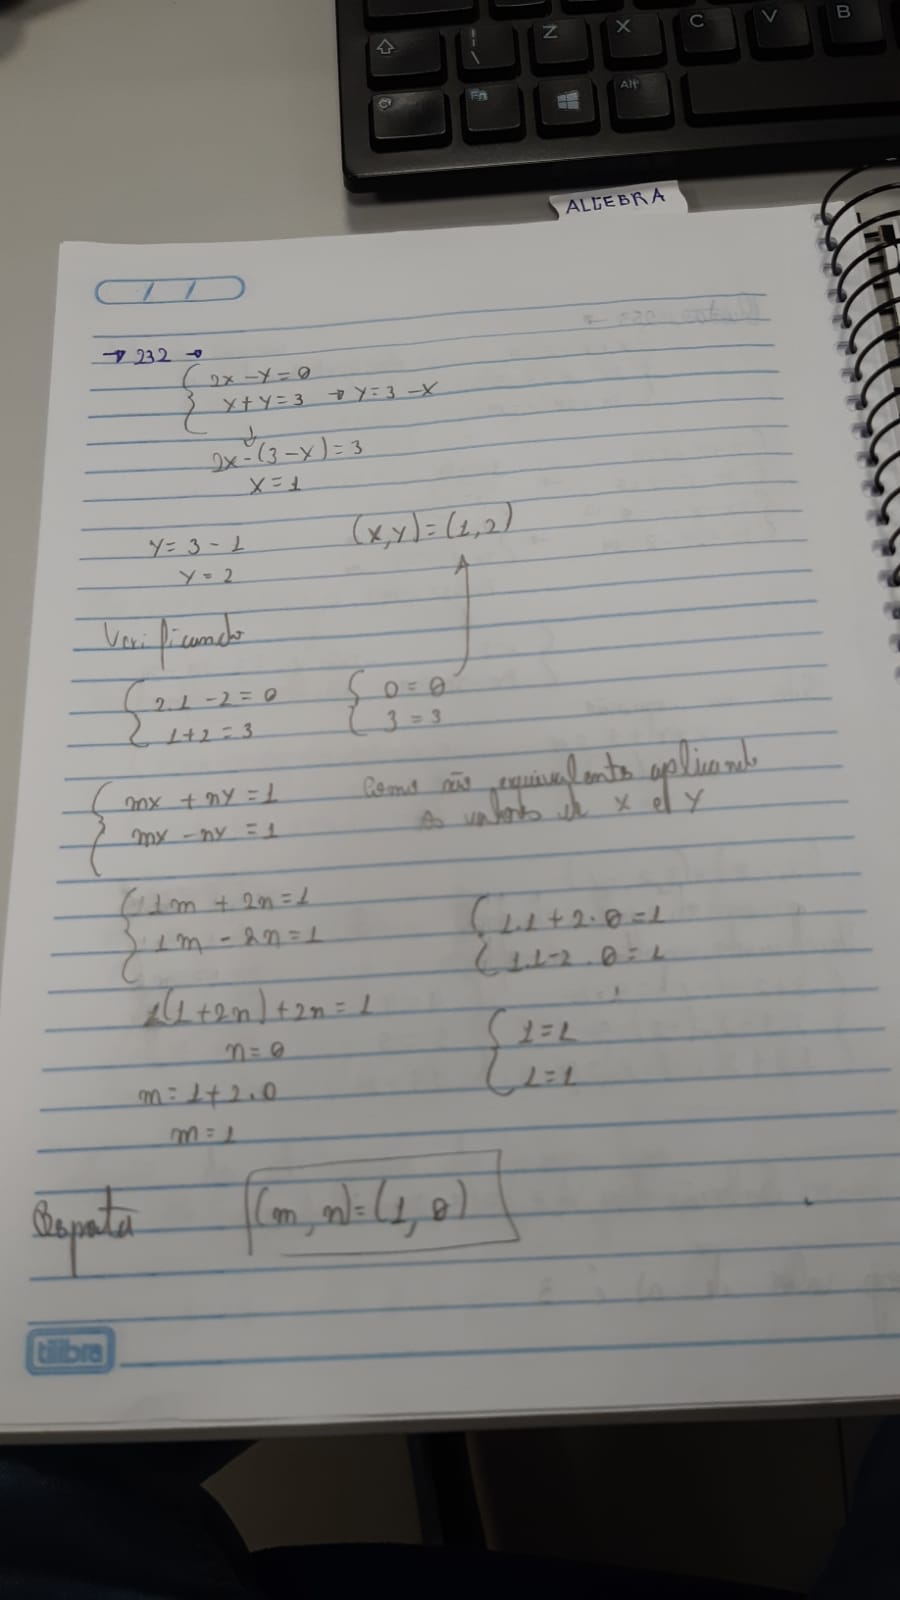 Z X C V B
Fn Alt
ALGEBRA
→ 232 →
2x - y = 0
x + y = 3 → y = 3 - x
↓
2x - (3 - x) = 3
x = 1
y = 3 - 1 (x, y) = (1, 2)
y = 2
Verificando
2.1 - 2 = 0 0 = 0
1 + 2 = 3 3 = 3
mx + ny = 1 Como são equivalentes aplicando
mx - ny = 1 os valores de x e y
1m + 2n = 1 1.1 + 2.0 = 1
1m - 2n = 1 1.1 - 2.0 = 1
1(1 + 2n) + 2n = 1 1 = 1
n = 0 1 = 1
m = 1 + 2.0
m = 1
Resposta (m, n) = (1, 0)
tilibra